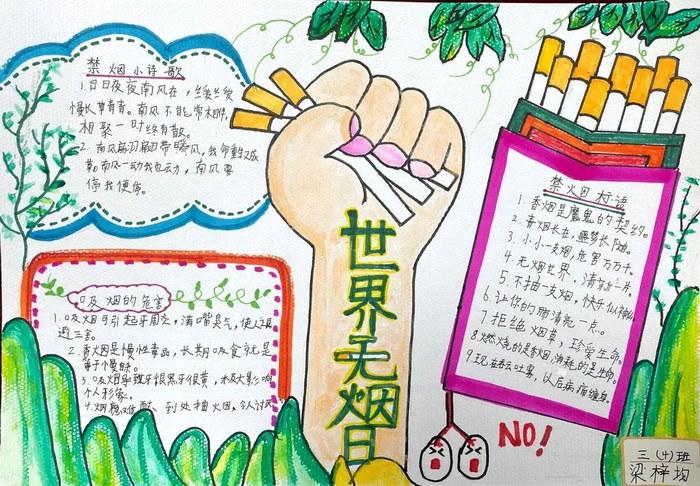 禁烟小诗歌
1.日日夜夜南风在，
慢长草青青。南风不能常相伴，
相聚一时终有散。
2.南风
草。南风一动我也动，南风要
停我便停。
吸烟的危害
1.吸烟可引起牙周炎，满口嘴臭气，使人
避三舍。
2.香烟是慢性毒品，长期吸食就是
等于慢
3.吸烟导致牙很黑牙很黄，
个人形象。
4.烟 到处抽烟，令人讨厌
世界无烟日
禁烟标语
1.香烟是魔鬼的契约。
2.青烟长在，噩梦长随。
3.小小一支烟，危害万万千。
4.无烟世界，清京一片。
5.不抽一支烟，快乐似神仙
6.让你的肺清亮一点。
7.拒绝烟草，珍爱生命。
8.燃烧的是香烟，消耗的是生命。
9.现在吞云吐雾，以后病痛缠身。
NO!
三（十）班
梁梓均